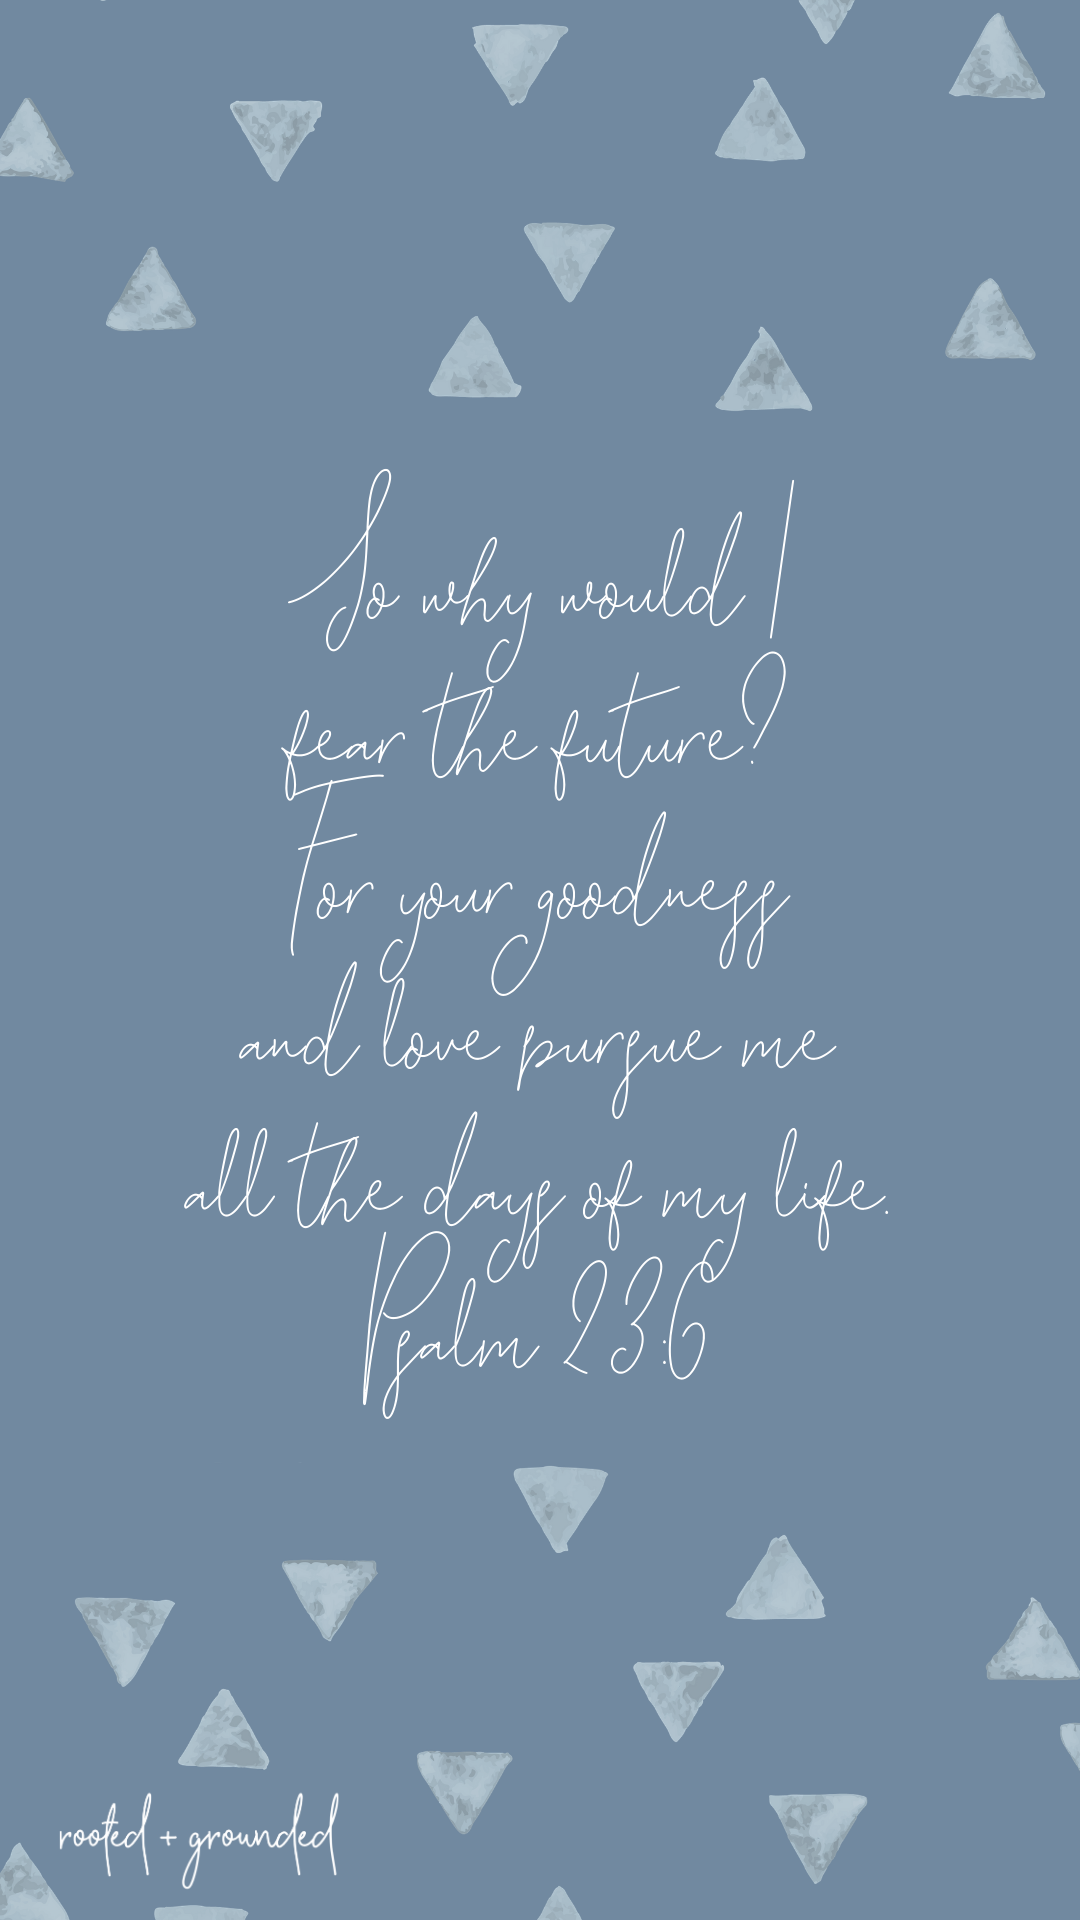 So why would I
fear the future?
For your goodness
and love pursue me
all the days of my life.
Psalm 23:6
rooted + grounded